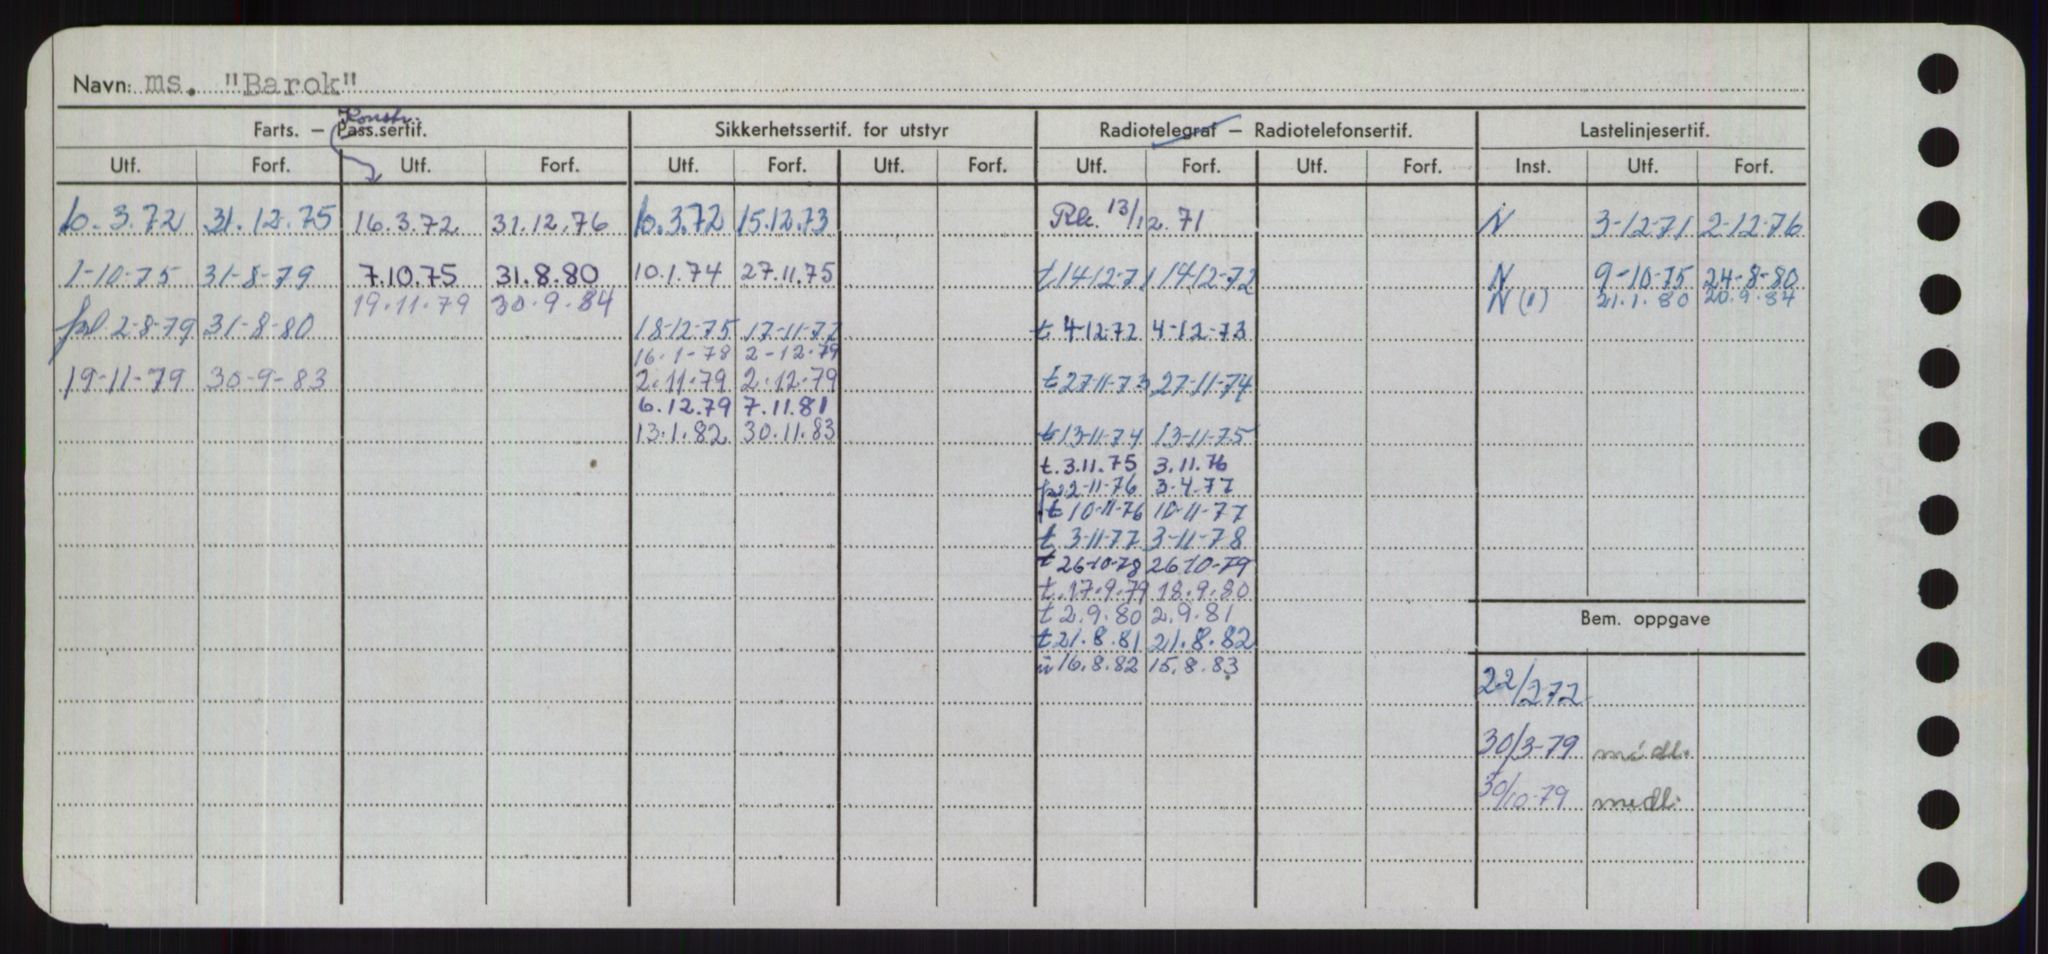 Navn: ms. "Barok"
Konstr.
Farts. — Pass.sertif. Sikkerhetssertif. for utstyr Radiotelegraf — Radiotelefonsertif. Lastelinjesertif.
Utf. Forf. Utf. Forf. Utf. Forf. Utf. Forf. Utf. Forf. Utf. Forf. Inst. Utf. Forf.
10.3.72 31.12.75 16.3.72 31.12.76 10.3.72 15.12.73 13/12.71 N 3-12-71 2-12-76
1-10-75 31-8-79 7.10.75 31.8.80 10.1.74 27.11.75 t 14-12-71 14-12-72 N 9-10-75 24-8-80
19.11.79 30.9.84 N (1) 21.1.80 20.9.84
2-8-79 31-8-80 18-12-75 17-11-77 t 4-12-72 4-12-73
16-1-78 2-12-79
19-11-79 30-9-83 2.11.79 2.12.79 t 27-11-73 27-11-74
6.12.79 7.11.81
13.1.82 30.11.83 t 13-11-74 13-11-75
t. 3.11.75 3.11.76
2-11-76 3-4-77
t 10-11-76 10-11-77
t 3-11-77 3-11-78
t 26-10-78 26-10-79
t. 17.9.79 18.9.80
t 2.9.80 2.9.81
Bem. oppgave
t 21.8.81 21.8.82
16.8.82 15.8.83
22/2 72
30/3-79 medl.
30/10-79 medl.